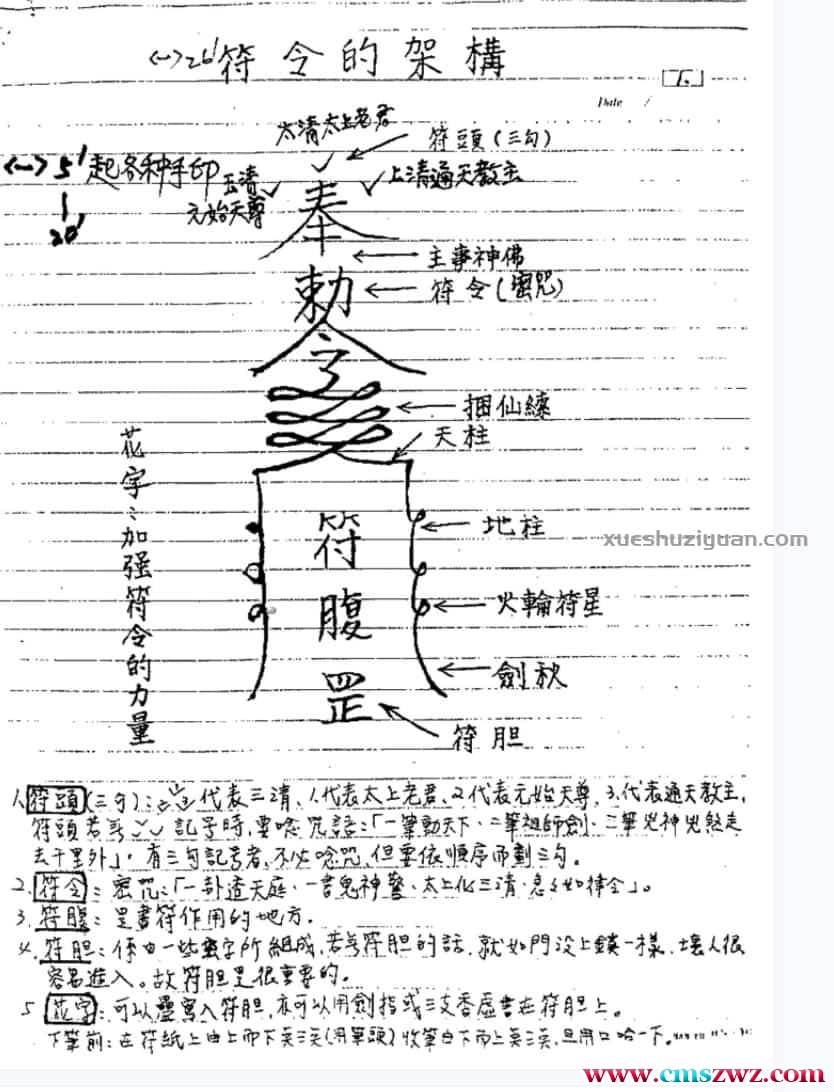 <一>26' 符令的架構
Date /
1.
太清太上老君
符頭(三勾)
<一> 5' 起各种手印
20'
玉清
元始天尊
上清通天教主
奉
主事神佛
勅
符令(密咒)
令
捆仙繩
天柱
花字:加强符令的力量
地柱
符
腹
罡
火輪符星
劍秋
符胆
xueshuziyuan.com
1. 符頭(三勾):代表三清、1.代表太上老君、2.代表元始天尊、3.代表通天教主,
符頭若無記号時,要唸咒語:「一筆動天下、二筆祖師劍、三筆兇神兇煞走
去千里外」,有三勾記号者、不必唸咒,但要依順序而劃三勾。
2. 符令:密咒:「一卦透天庭、一書鬼神驚、太上化三清、急々如律令」。
3. 符腹:是書符作用的地方。
4. 符胆:係由一些字所組成,若無符胆的話,就如門没上鎖一樣,壞人很
容易進入。故符胆是很重要的。
5 花字:可以疊寫入符胆,亦可以用劍指或三支香虛書在符胆上。
下筆前:在符紙上由上而下(用筆頭)收筆由下而上,且用口哈一下。
www.cmszwz.com